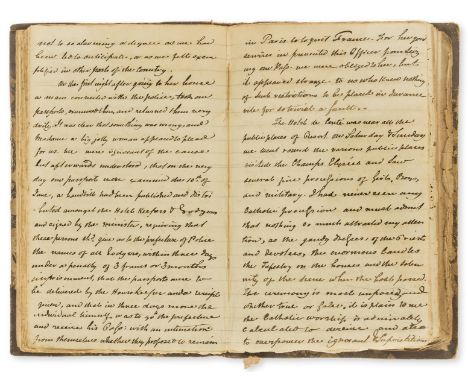 not to so alarming a degree as we had
been led to anticipate, or as was fully exem-
plified in other parts of the Country.
On the first night after going to her house
a man connected with the police took our
passports, examined them and returned them very
civilly. It was then that something was wrong and
Madame a fat jolly woman appeared to plead
for us: we were ignorant of the cause
but afterwards understood, that on the very
day our passports were examined the 10th of
June, a handbill had been published and distri
buted amongst the Hotel Keepers &
and signed by the minister, requiring that
these persons shd. give in to the prefecture of Police
the names of all Lodgers, within three days
under a penalty of 3 francs or 3 months
imprisonment, that the passports were to
be delivered by the Housekeeper
and that in three days more the
individual himself, was to go to the prefecture
and receive his Pass with an intimation
from themselves whether they proposed to remain
in Paris or to quit France. For her good
services in presented this Officer from seiz
ing our Pass. we were obliged to her, but
it appeared strange to us who knew nothing
of such restrictions to be places in durance
vile for so trivial a fault.
The Hotel de was near all the
public places of On Saturday & Sunday
we went round the various public places
visited the Champs Elysees and saw
several fine processions of Girls, Boys,
and military. I had never seen any
Catholic procession and must admit
that nothing so much attracted my atten
tion, as the gaudy dresses of the Priests
and devotees, the enormous candles
the Tapestry on the houses and the solem
nity of the scene when the host passed.
The ceremony is most imposing and
whether true or false, it is plain to me
the Catholic worship is admirably
calculated to deceive and also
to overpower the ignorant & superstitious